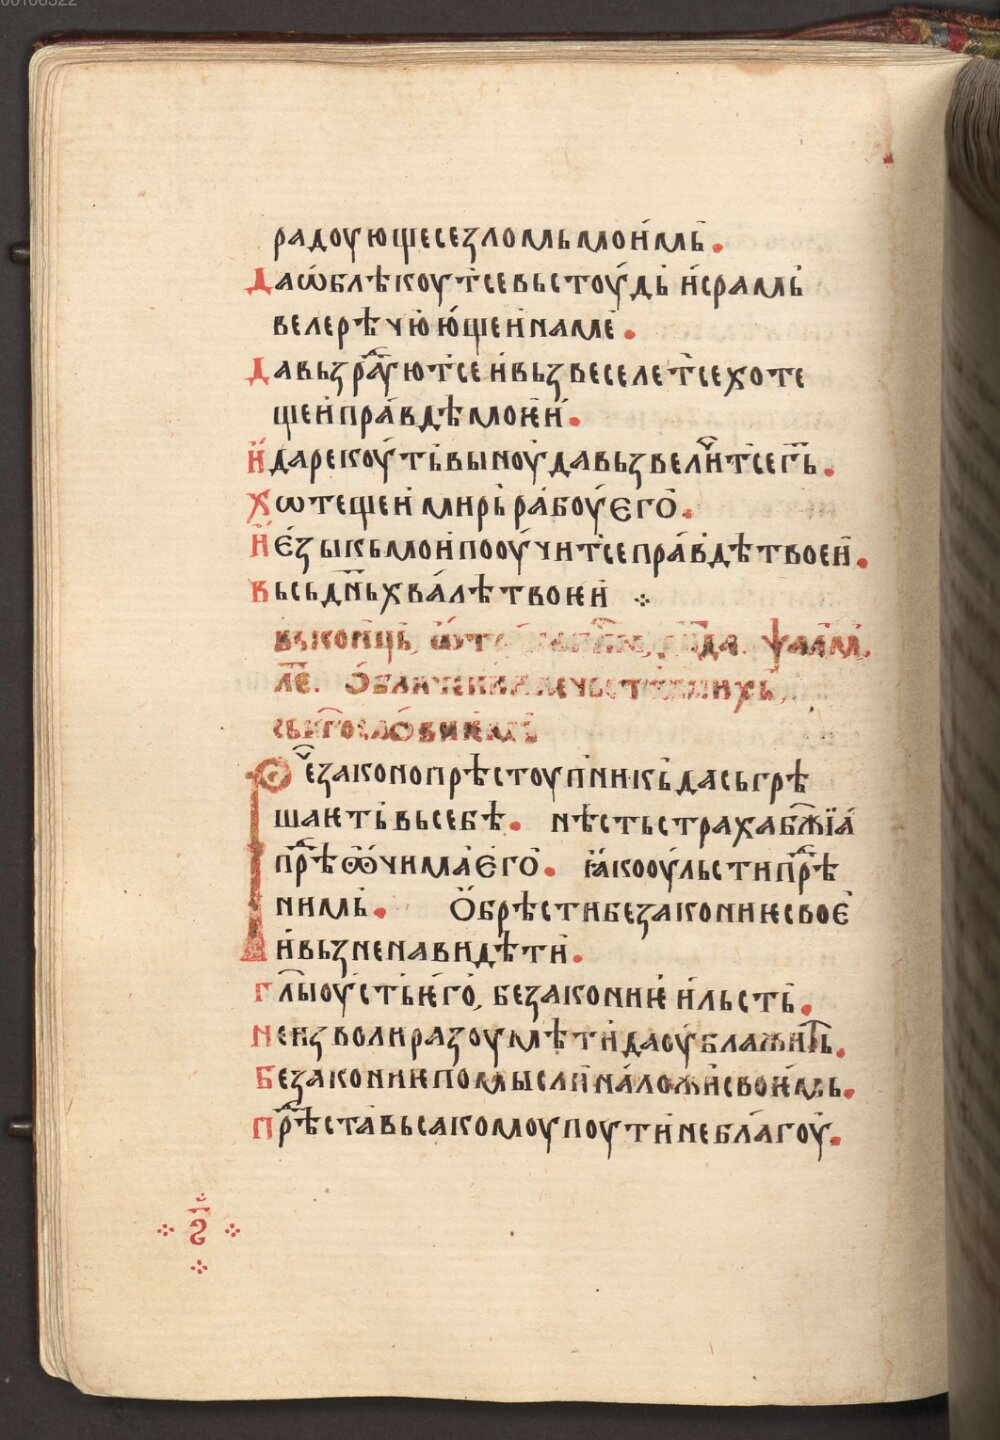 00106322
радоующесезломьмоймь.
Даѡблѣкоутсевьстоудь йсрамь
велерѣчюющеинаме.
Давьзраⷣуютсейвьзвеселетсехоте
щейправдѣмоѥй.
Йдарекоутьвыноудавьзвелⷱитсегⷭ҇ь.
Хѡтещеймирьрабоуего.
Йезыкьмойпооучитсеправдѣтвоей.
Вьсьдн҃ьхвалѣтвоѥй
Вьконць,
лѣ҃.
сьбг҃ословиѥмь
езаконопрѣстоупникьдасьгрѣ
шаѥтьвьсебѣ. нѣстьстрахабж҃їа
прⷣѣѡчимаего. ꙗкооульстипрⷣѣ
нимь. Обрѣстибезакониѥсвое
йвьзненавидѣти.
Гл҃ыоустьѥго, безакониѥ ильсть.
Неизволиразоумѣтидаоублажить.
Безакониѥпомыслйналожисвоѥмь.
Прⷣѣставьсакомоупоутинеблагоу.
ѕ҃